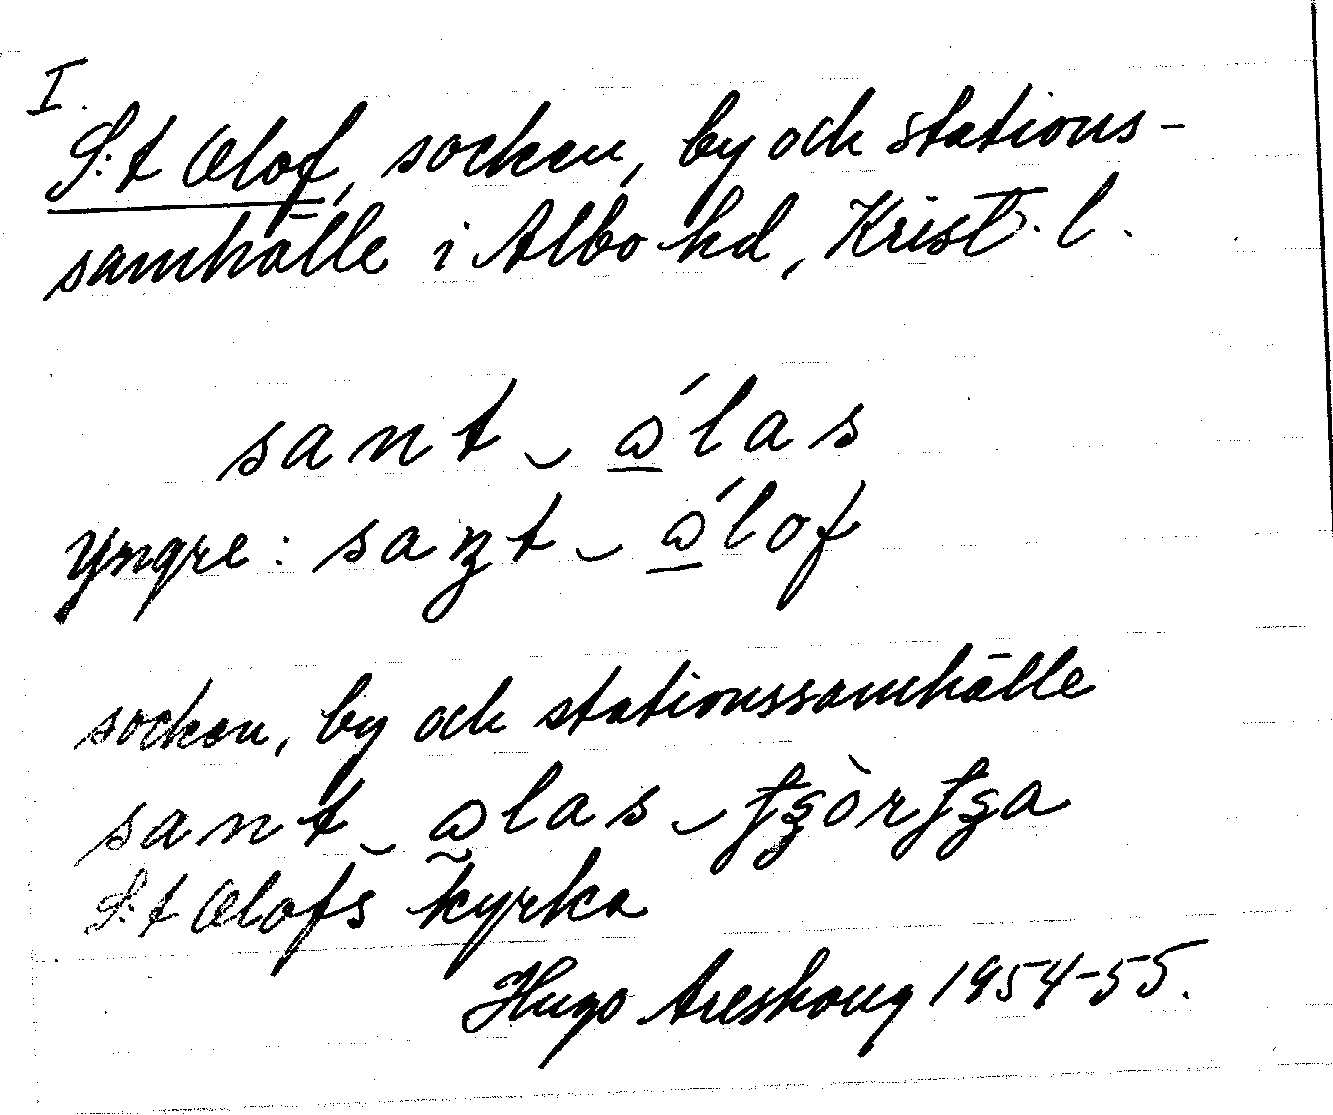 I.
S:t Olof, socken, by och stations-
samhälle i Albo hd, Krist. l.
sant ‿ ɷ̲́las
Yngre: saɲt ‿ ɷ̲́lof
socken, by och stationssamhälle
sant ‿ ɷ̰las ‿
S:t Olofs kyrka
Hugo Areskoug 1954-55.